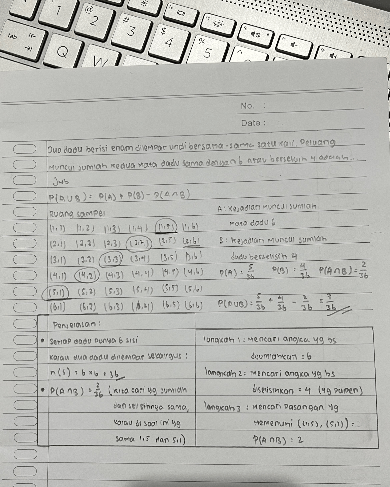 No. :
Date :
Dua dadu berisi enam dilempar undi bersama-sama satu kali. Peluang
muncul jumlah kedua mata dadu sama dengan 6 atau berselisih 4 adalah..
Jwb
P(A∪B) = P(A) + P(B) - P(A∩B)
Ruang sampel
A : Kejadian muncul jumlah
mata dadu 6
B : Kejadian muncul jumlah
dadu berselisih 4
(1,1) (1,2) (1,3) (1,4) (1,5) (1,6)
(2,1) (2,2) (2,3) (2,4) (2,5) (2,6)
(3,1) (3,2) (3,3) (3,4) (3,5) (3,6)
(4,1) (4,2) (4,3) (4,4) (4,5) (4,6)
(5,1) (5,2) (5,3) (5,4) (5,5) (5,6)
(6,1) (6,2) (6,3) (6,4) (6,5) (6,6)
P(A) : 5/36 P(B) : 4/36 P(A∩B) = 2/36
P(A∪B) = 5/36 + 4/36 - 2/36 = 7/36
Penjelasan :
• Setiap dadu punya 6 sisi
kalau dua dadu dilempar sekaligus :
n(S) = 6 x 6 = 36
• P(A∩B) = 2/36 (kita cari yg jumlah
dan selisihnya sama,
kalau di soal ini yg
sama 1,5 dan 5,1)
langkah 1 : Mencari angka yg bs
dijumlahkan = 6
langkah 2 : Mencari angka yg bs
diselisihkan = 4
langkah 3 : Mencari pasangan yg
memenuhi (1,5), (5,1) =
P(A∩B) = 2
Q
W
1
2
3
4
5